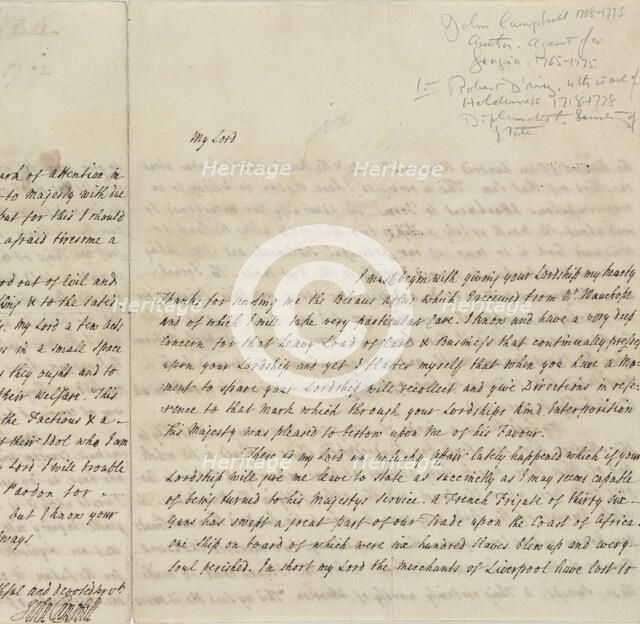 John Campbell 1708-1775
Author. Agent for
Georgia. 1765-1775
1 = Robert D'Arcy, 4th earl of
Holderness 1718-1778
Diplomatist, Secretary of
State
My Lord
ark of attention in
to Majesty with due
but for this I should
afraid tiresome a
od out of Evil and
& to the Sated
My Lord a few acts
in a small space
they ought and to
their welfare. This
the Factious & a
their Idol who I am
Lord I will trouble
Pardon for
but I know your
ways
ful and devoted
John Campbell
I must begin with giving your Lordship my hearty
Thanks for sending me the Atlas which I received from Mr. Wauchope
and of which I will take very particular Care. I know and have a very deep
Concern for that heavy Load of Care & Business that continually presses
upon your Lordship and yet I flatter myself that when you have a Mo-
ment to spare your Lordship will recollect and give Directions in refe-
rence to that Mark which through your Lordships kind Interposition
his Majesty was pleased to bestow upon Me of his Favour.
There is my Lord an unlucky affair lately happened which if your
Lordship will give me leave to state as succinctly as I may seems capable
of being turned to his Majestys service. A French Frigate of thirty six
Guns has swept a great part of our Trade upon the Coast of Africa.
one ship on board of which were six hundred Slaves blew up and every
soul perished. In short my Lord the merchants of Liverpool have lost to
Heritage Heritage
Heritage Heritage Heritage
Heritage Heritage
©